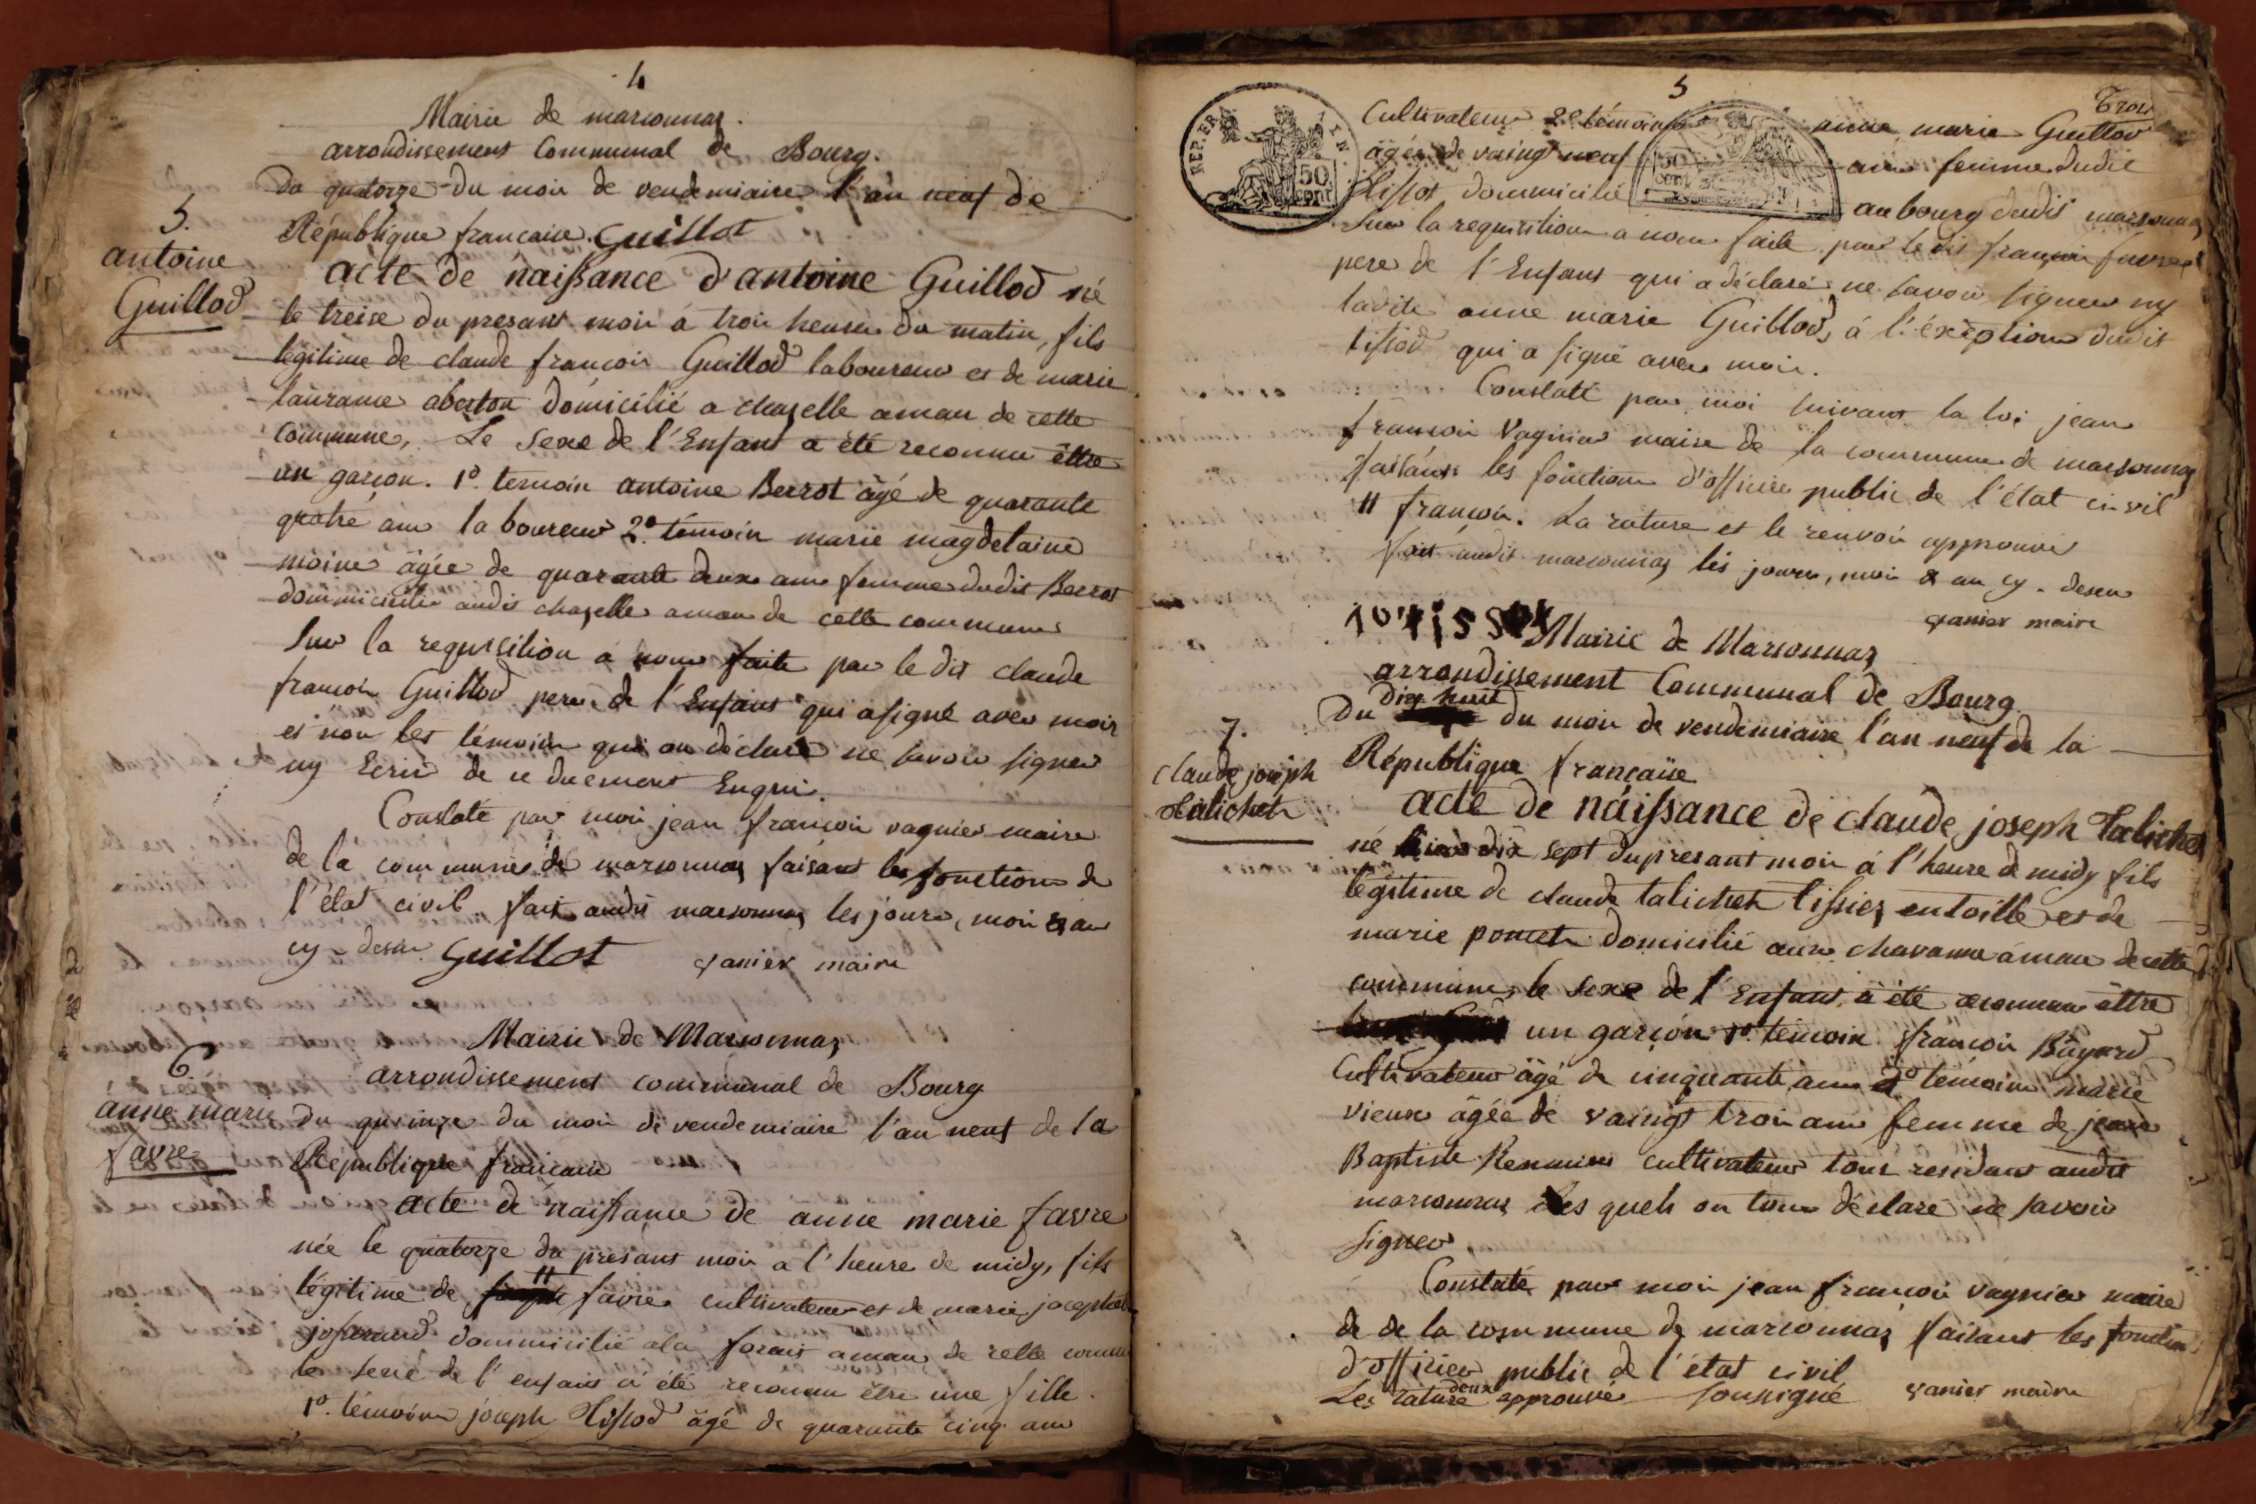 4
Mairie de marsonnaz.
arrondissement Communal de Bourg.
Du quatorze du mois de vendemiaire l'an neuf de
République francaise. Guillot
5.
antoine
Guillod
acte de naissance d'antoine Guillod né
le treise du presant mois à trois heures du matin, fils
légitime de claude francois Guillod laboureur et de marie
laurance domicilié a chazelle amau de cette
commune, Le Sexe de l'Enfant a été reconnu êttre
un garçon. 1º. temoin antoine Berrot âgé de quarante
quatre ans laboureur 2º. témoin marie magdelaine
moine âgée de quarante deux ans femme dudit Berrot
dommicilié audit chazelle amau de cette commune
Sur la requisition à nous faite par le dit claude
francois Guillod pere de l'Enfant qui a signé avec moi
et non les témoins qui on déclaré ne savoir signer
ny Ecrir de ce duement Enquis.
Constaté par moi jean francois vagnier maire
de la commune de marsonnaz faisant les fonctions de
l'état civil fait audit marsonnaz les jours, mois & an
cy-dessu Guillot vanier maire
Mairie de Marsonnaz
6.
anne marie
favre
arrondissement communal de Bourg
Du quinze du mois de vendemiaire l'an neuf de la
République francaise
acte de naissance de anne marie favre
née le quatorze du presant mois a l'heure de midy, fils
légitime de favre cultivateur et de marie josephte
dommicilié a la forais amau de cette commu
le sexe de l'enfant a été reconnu être une fille.
1º. témoin joseph Tissod âgé de quarante cinq ans
5
Trois
REP. FRA.
50 cent
50 cent
Cultivateur 2e témoin anne marie Guillod
âgée de vaingt neuf ans femme dudit
Tissot dommicilié au bourg dudit marsonnaz
Sur la requisition a nous faite par le dit françois favre
pere de l'Enfant qui a déclaré ne savoir signer ny
ladite anne marie Guillod, à l'éxception dudit
tissod qui a signé avec moi.
Constaté par moi suivant la loi jean
francois Vagnier maire de la commune de marsonnaz
faisant les fonctions d'officier public de l'état civil
// francois. La rature et le renvoi approuvé
fait audit marsonnaz les jours, mois & an cy-dessu
vanier maire
Mairie de Marsonnaz
arrondissement Communal de Bourg.
Du dix huit du mois de vendemiaire l'an neuf de la
République francaise
7.
claude joseph
talichet
acte de naissance de claude joseph Talichet
né dix sept du presant mois à l'heure de midy fils
légitime de claude talichet tissier en toille et de
marie poncet domicilié aux chavanne amau de cette
commune, le sexe de l'Enfant à été reconnu êttre
un garçon 1º. témoin francois Buyard
Cultivateur âgé de cinquante ans 2º temoin marie
vieux âgée de vaingt trois ans femme de jean
Baptiste cultivateur tous residant audit
marsonnaz Les quels on tous déclaré ne savoir
signer.
Constaté par moi jean francois vagnier maire
de de la commune de marsonnaz faisant les fonctions
d'officier public de l'état civil
Les deux rature approuvé soussigné vanier maire